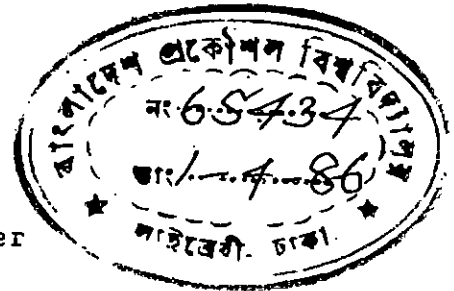 বাংলাদেশ প্রকৌশল বিশ্ববিদ্যালয়
নং 65434
তাং 1-4-86
লাইব্রেরী. ঢাকা.
er